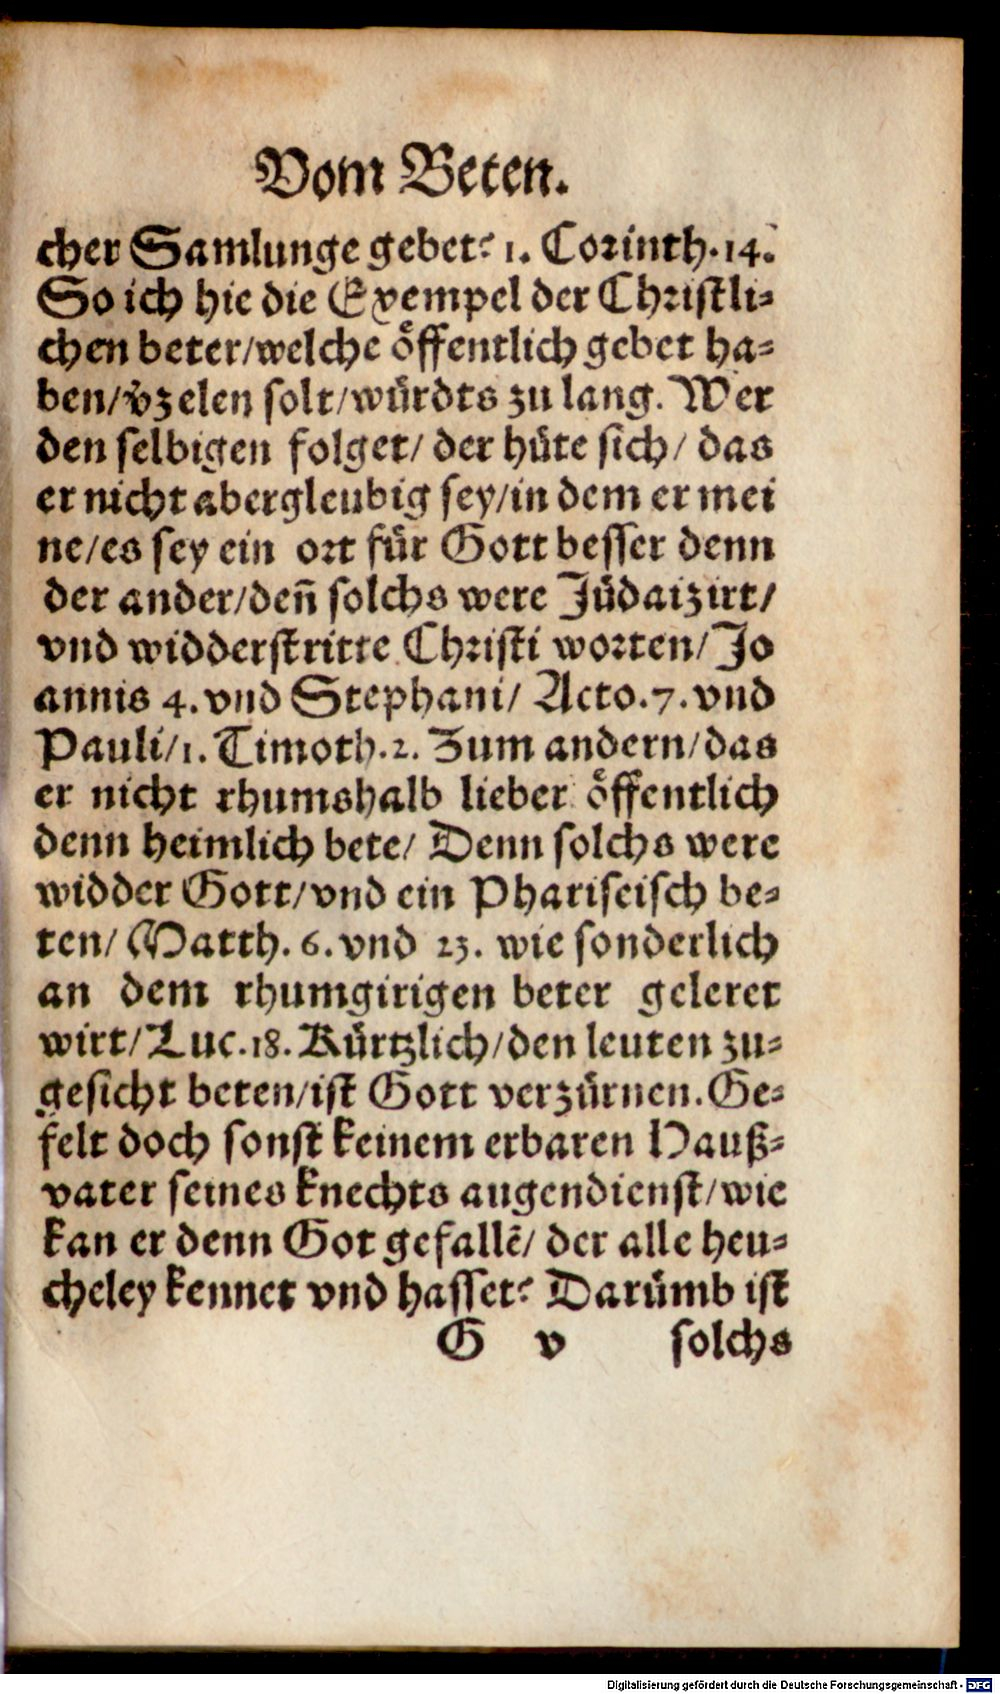 Vom Beten.
cher Samlunge gebet? 1. Corinth. 14.
So ich hie die Exempel der Christli⸗
chen beter/welche oͤffentlich gebet ha⸗
ben/v̈zelen solt/wuͤrdts zu lang. Wer
den selbigen folget/ der huͤte sich/ das
er nicht abergleubig sey/in dem er mei
ne/es sey ein ort fuͤr Gott besser denn
der ander/deñ solchs were Juͤdaizirt/
vnd widderstritte Christi worten/ Jo
annis 4. vnd Stephani/ Acto. 7. vnd
Pauli/1. Timoth. 2. Zum andern/das
er nicht rhumshalb lieber oͤffentlich
denn heimlich bete/ Denn solchs were
widder Gott/vnd ein Phariseisch be⸗
ten/ Matth. 6. vnd 23. wie sonderlich
an dem rhumgirigen beter geleret
wirt/Luc. 18. Kuͤrtzlich/den leuten zu⸗
gesicht beten/ist Gott verzuͤrnen. Ge⸗
felt doch sonst keinem erbaren Hauß⸗
vater seines knechts augendienst/wie
kan er denn Got gefallẽ/ der alle heu⸗
cheley kennet vnd hasset? Daruͤmb ist
G v solchs
Digitalisierung gefördert durch die Deutsche Forschungsgemeinschaft - DFG